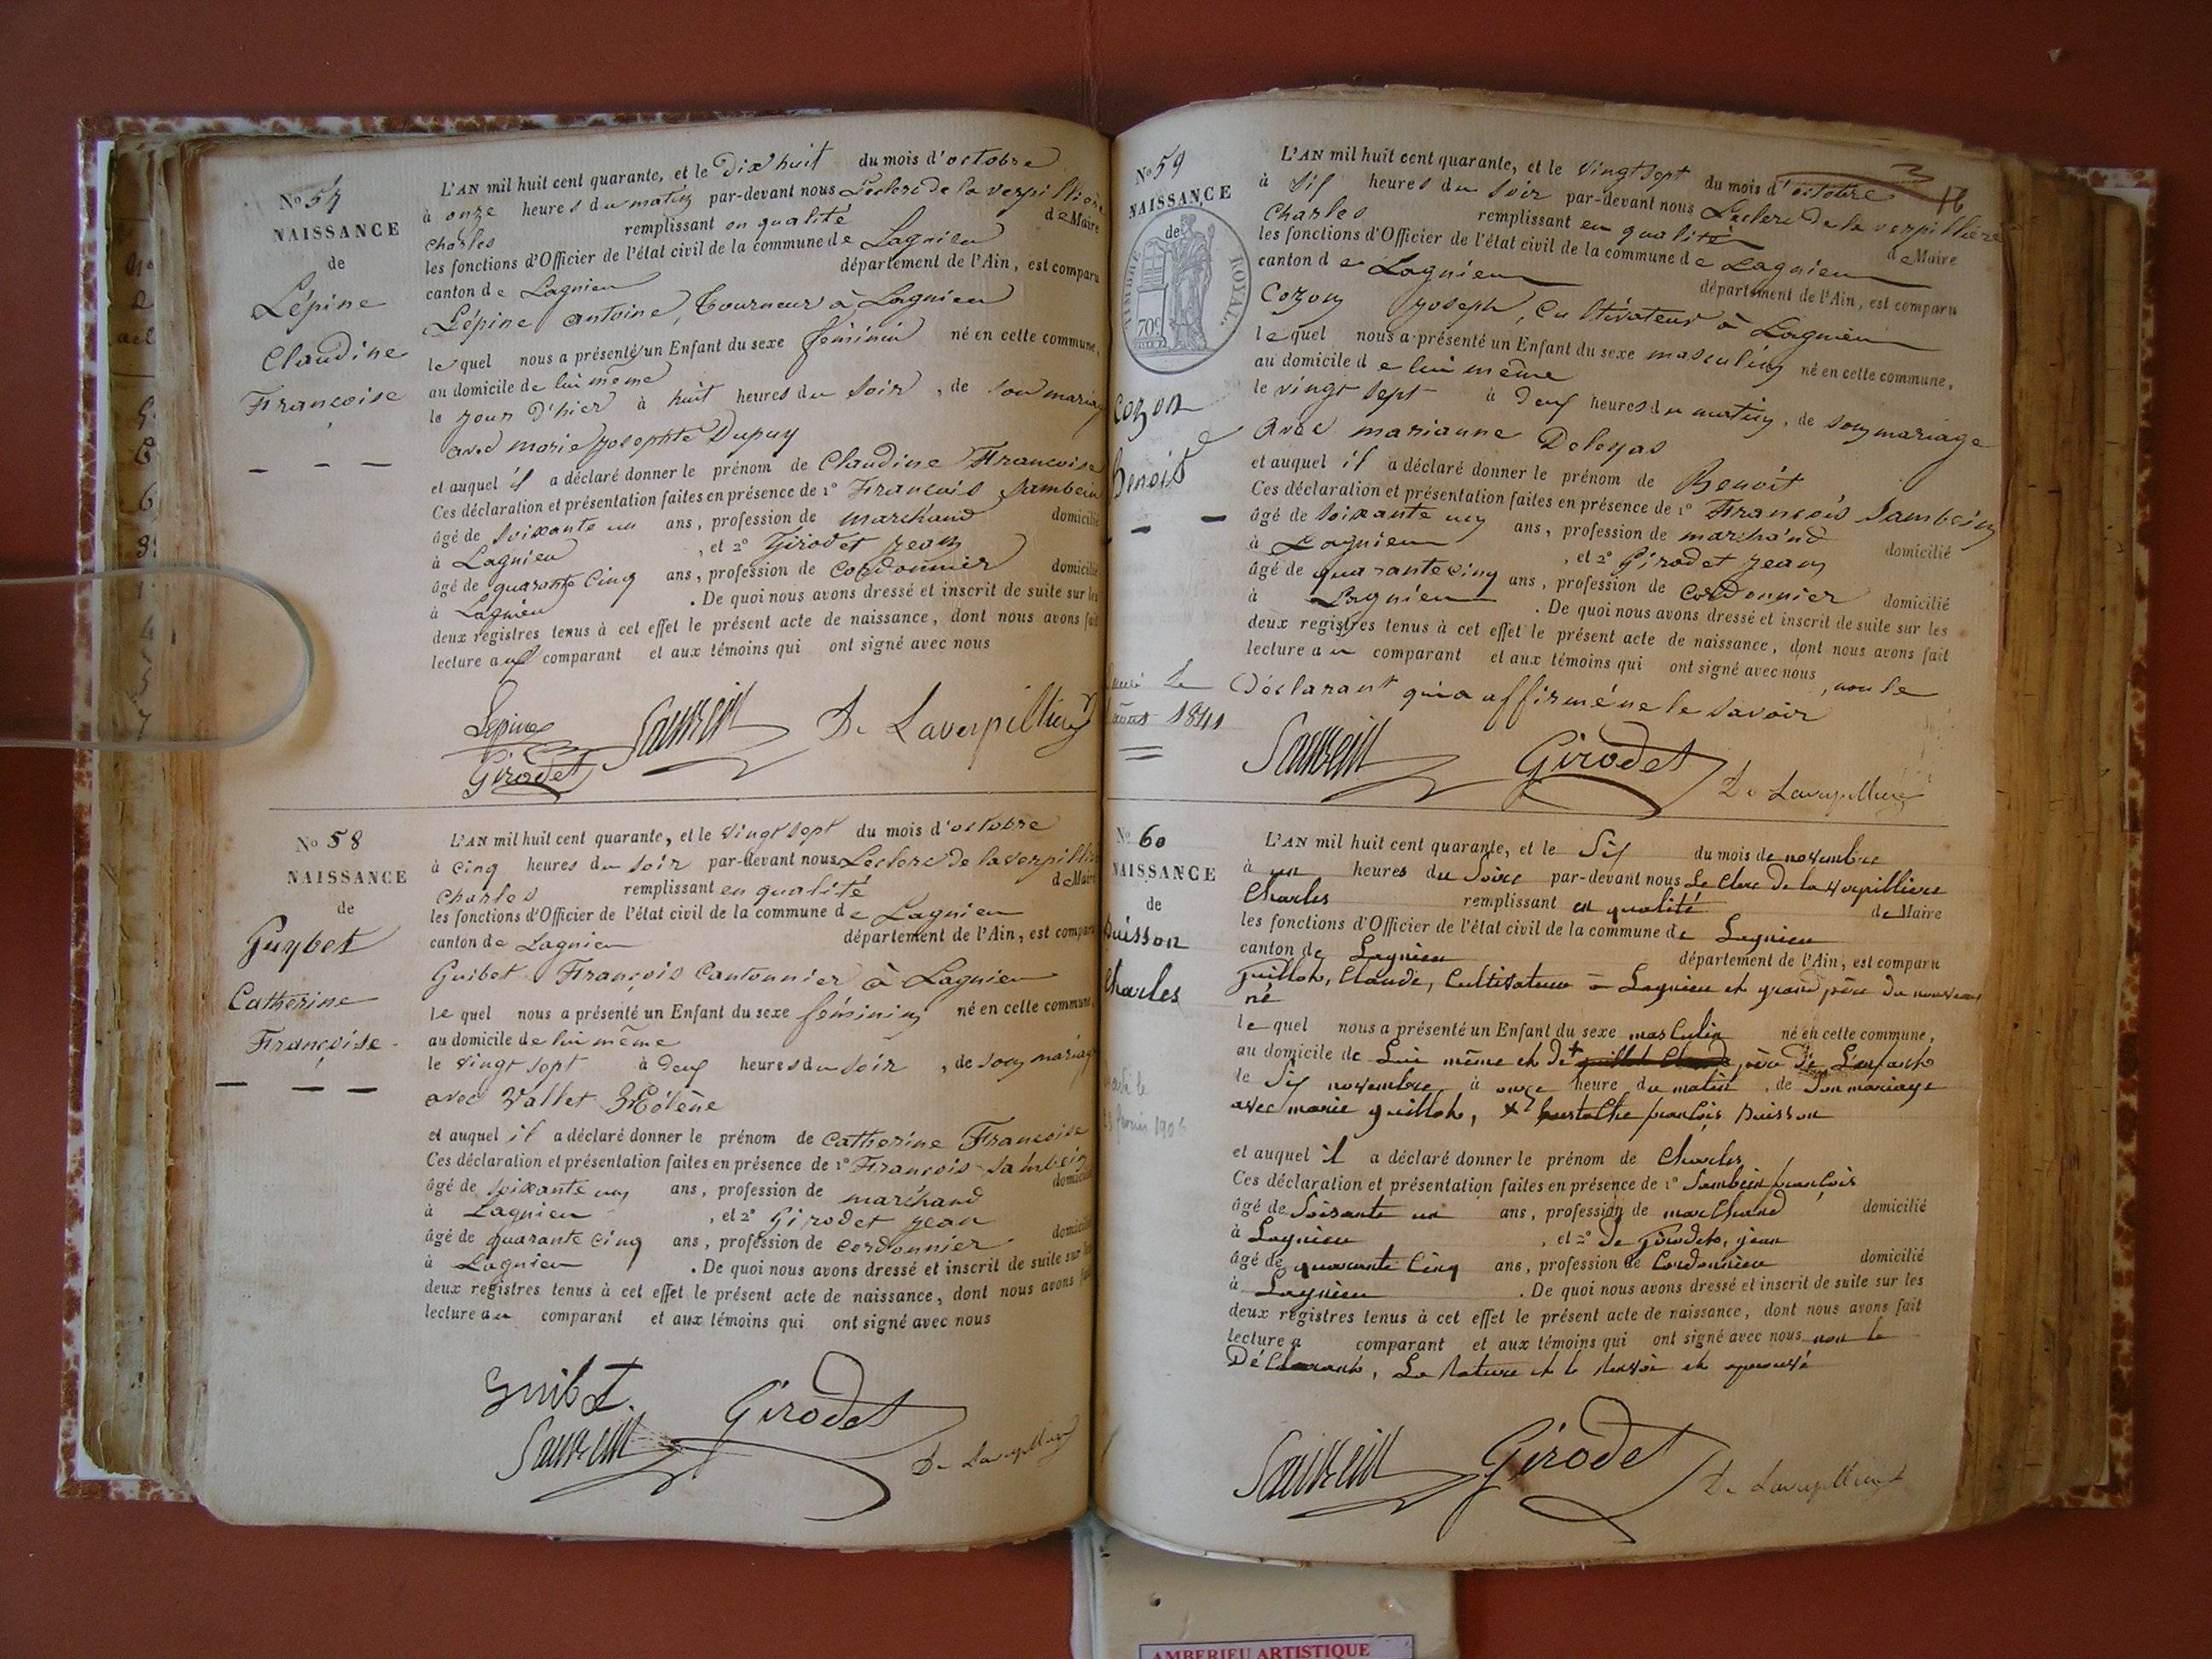 No 57
NAISSANCE
de
Lépine
Claudine
Françoise
L'AN mil huit cent quarante, et le Dix huit du mois d'octobre
à onze heures du matin par-devant nous Leclerc de la verpillière
Charles remplissant en qualité de Maire
les fonctions d'Officier de l'état civil de la commune de Lagnieu
canton de Lagnieu département de l'Ain, est comparu
Lépine antoine, tourneur à Lagnieu
lequel nous a présenté un Enfant du sexe féminin né en cette commune,
au domicile de lui même
le jour d'hier à huit heures du soir, de son mariage
avec marie josephte Dupuy
et auquel il a déclaré donner le prénom de Claudine Françoise
Ces déclaration et présentation faites en présence de 1° François Sambein
âgé de soixante un ans, profession de marchand domicilié
à Lagnieu, et 2° Girodet jean
âgé de quarante cinq ans, profession de cordonnier domicilié
à Lagnieu. De quoi nous avons dressé et inscrit de suite sur les
deux registres tenus à cet effet le présent acte de naissance, dont nous avons fait
lecture au comparant et aux témoins qui ont signé avec nous
Lépine Sambein De Laverpillière
Girodet
No 58
NAISSANCE
de
Guybet
Catherine
Françoise
L'AN mil huit cent quarante, et le vingt sept du mois d'octobre
à cinq heures du soir par-devant nous Leclerc de laverpillière
Charles remplissant en qualité de Maire
les fonctions d'Officier de l'état civil de la commune de Lagnieu
canton de Lagnieu département de l'Ain, est comparu
Guibet François Cantonnier à Lagnieu
lequel nous a présenté un Enfant du sexe féminin né en cette commune,
au domicile de lui même
le vingt sept à deux heures du soir, de son mariage
avec Vallet Hélène
et auquel il a déclaré donner le prénom de Catherine Françoise
Ces déclaration et présentation faites en présence de 1° François Sambein
âgé de soixante un ans, profession de marchand domicilié
à Lagnieu, et 2° Girodet jean
âgé de quarante cinq ans, profession de cordonnier domicilié
à Lagnieu. De quoi nous avons dressé et inscrit de suite sur les
deux registres tenus à cet effet le présent acte de naissance, dont nous avons fait
lecture au comparant et aux témoins qui ont signé avec nous
Guibet.
Girodet
Sambein De Laverpillière
No 59
NAISSANCE
de
TIMBRE ROYAL.
Cozon
Benoit
1841
L'AN mil huit cent quarante, et le vingt sept du mois d'octobre
à six heures du soir par-devant nous Leclerc De la verpillière
Charles remplissant en qualité de Maire
les fonctions d'Officier de l'état civil de la commune de Lagnieu
canton de Lagnieu département de l'Ain, est comparu
Cozon joseph, Cultivateur à Lagnieu
lequel nous a présenté un Enfant du sexe masculin né en cette commune,
au domicile de lui même
le vingt sept à deux heures du matin, de son mariage
avec marianne
et auquel il a déclaré donner le prénom de Benoit
Ces déclaration et présentation faites en présence de 1° François Sambein
âgé de soixante un ans, profession de marchand domicilié
à Lagnieu, et 2° Girodet jean
âgé de quarante cinq ans, profession de cordonnier domicilié
à Lagnieu. De quoi nous avons dressé et inscrit de suite sur les
deux registres tenus à cet effet le présent acte de naissance, dont nous avons fait
lecture au comparant et aux témoins qui ont signé avec nous, non le
Déclarant qui a affirmé ne le savoir
Sambein Girodet De Laverpillière
No 60
NAISSANCE
de
Buisson
Charles
L'AN mil huit cent quarante, et le Six du mois de novembre
à un heures du Soire par-devant nous Le Clerc De la verpilliere
Charles remplissant en qualité de Maire
les fonctions d'Officier de l'état civil de la commune de Lagnieu
canton de Lagnieu département de l'Ain, est comparu
Guillot, Claude, Cultivateur à Lagnieu et grand père du nouveau
né
lequel nous a présenté un Enfant du sexe masculin né en cette commune,
au domicile de Lui même et de + père de L'enfant
le Six novembre, à onze heure du matin, de Son mariage
avec marie guillot, x Eustache françois Buisson
et auquel il a déclaré donner le prénom de Charles
Ces déclaration et présentation faites en présence de 1° Sambein françois
âgé de Soixante un ans, profession de marchand domicilié
à Lagnieu, et 2° de Girodet, jean
âgé de quarante Cinq ans, profession de Cordonnier domicilié
à Lagnieu. De quoi nous avons dressé et inscrit de suite sur les
deux registres tenus à cet effet le présent acte de naissance, dont nous avons fait
lecture a comparant et aux témoins qui ont signé avec nous non le
Déclarant, La Rature et le renvoi et aprouvé
Sambein Girodet De Laverpillière
AMBERIEU ARTISTIQUE